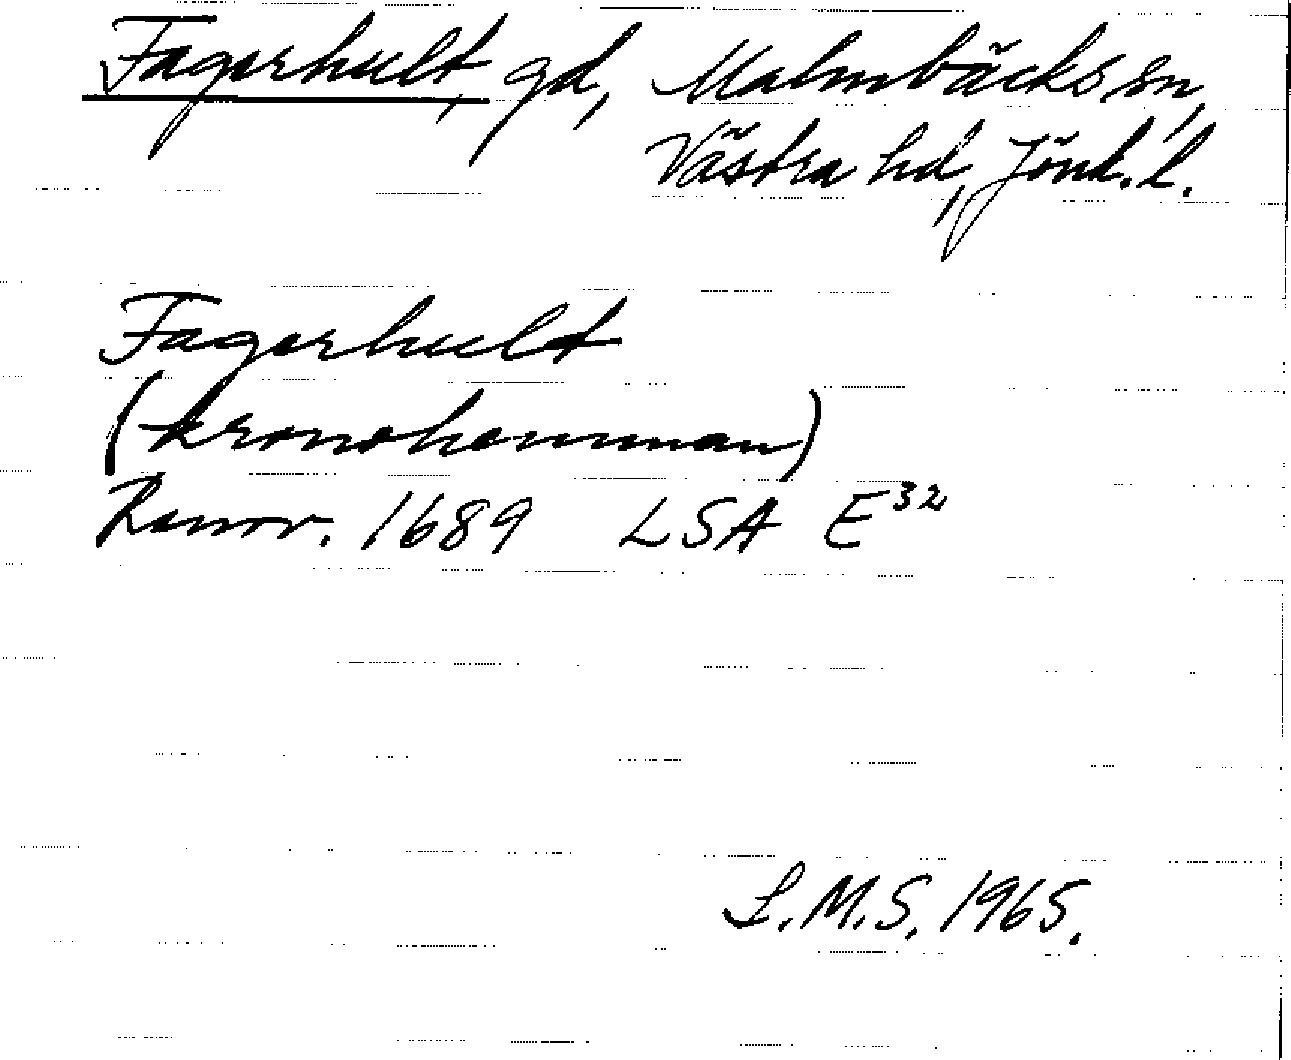 Fagerhult, gd, Malmbäcks sn,
Västra hd, Jönk. l.
Fagerhult
(kronohemman)
Rannr. 1689 LSA E³²
L.M.S. 1965.